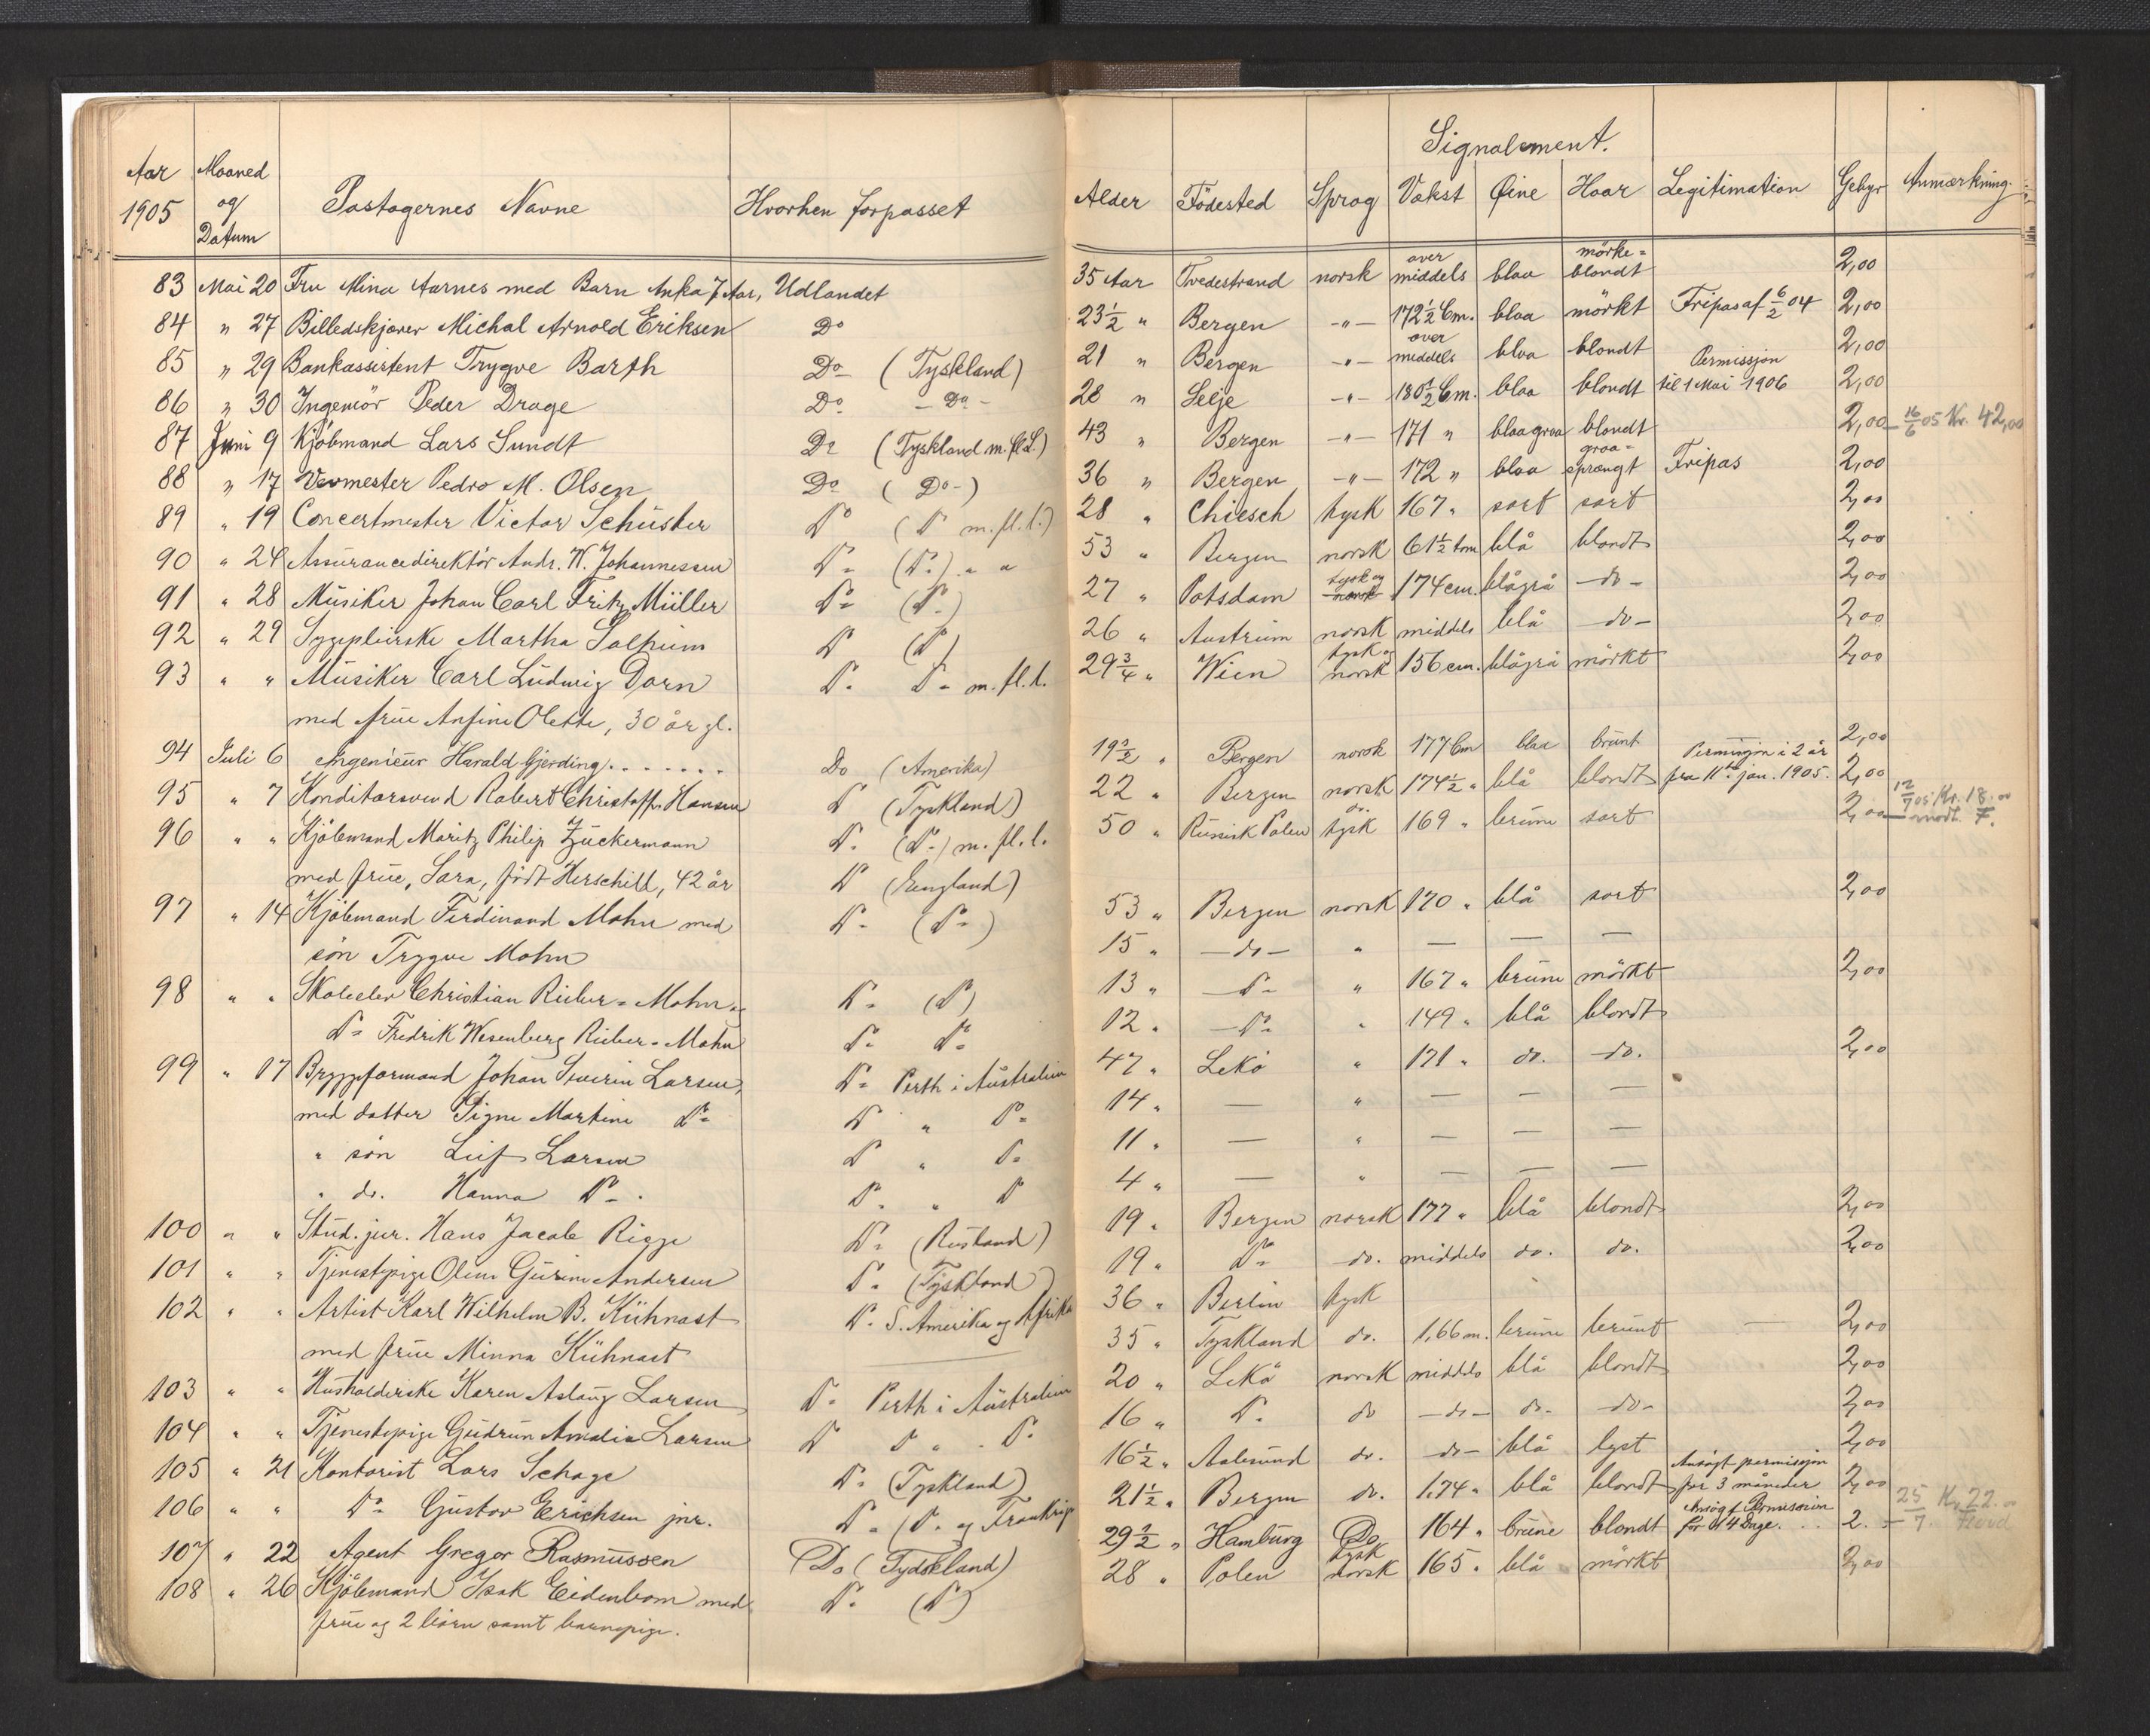 Aar 1905 | Maaned og Datum | Pastagernes Navne | Hvorhen forpasset
83 Mai 20 Fru Mina Aarnes med Barn Anka 7 Aar, Udlandet
84 " 27 Billedskjærer Michal Arnold Eriksen Do
85 " 29 Bankassistent Trygve Barth Do (Tyskland)
86 " 30 Ingeniör Peder Drage Do - Do -
87 Juni 9 Kjöbmand Lars Sundt Do (Tyskland m. fl. L.)
88 " 17 Vævmester Pedro M. Olsen Do (Do-)
89 " 19 Concertmester Victor Schüster Do (Do m. fl. l.)
90 " 24 Assurancedirektör Andr. W. Johannessen Do (Do) " "
91 " 28 Musiker Johan Carl Fritz Müller Do (Do)
92 " 29 Sygepleierske Martha Solheim Do (Do)
93 " " Musiker Carl Ludwig Dorn Do Do m. fl. l.
med frue Anfine Olette, 30 år gl.
94 Juli 6 Ingenieur Harald Gjerding....... Do (Amerika)
95 " 7 Konditorsvend Robert Christoffer Hansen Do (Tyskland)
96 " " Kjöbmand Moritz Philip Zuckermann Do (Do) m. fl. l.
med frue, Sara, födt Herschell, 42 år Do (England)
97 " 14 Kjöbmand Ferdinand Mohn med Do (Do)
sön Trygve Mohn
98 " " Skoleelev Christian Rieber-Mohn og Do (Do)
Do Fredrik Wesenberg Rieber-Mohn Do Do
99 " 17 Bryggeformand Johan Severin Larsen, Do Perth i Australien
med datter Signe Martine Do Do " Do
" sön Leif Larsen Do " Do
" do. Hanna Do. Do " Do
100 " " Stud. jur. Hans Jacob Rigge Do (Rusland)
101 " " Tjenestepige Oline Gurine Andersen Do (Tyskland)
102 " " Artist Karl Wilhelm B. Kühnast Do S. Amerika og Afrika
med frue Minna Kühnast
103 " " Husholderske Karen Aslaug Larsen Do Perth i Australien
104 " " Tjenestepige Gudrun Amalia Larsen Do Do " Do
105 " 21 Kontorist Lars Schage Do (Tyskland)
106 " " Do Gustav Erichsen jnr. Do (Do og Frankrig
107 " 22 Agent Gregor Rasmussen Do (Tydskland)
108 " 26 Kjöbmand Isak Eidenbom med Do (Do)
frue og 2 börn samt barnepige.
Signalement.
Alder | Födested | Sprog | Vækst | Øine | Haar | Legitimation | Gebyr | Anmærkning.
35 Aar Tvedestrand norsk over middels blaa mörke= blondt 2,00
23½ " Bergen -"- 172½ Cm. blaa mörkt Fripas af 6/2 04 2,00
21 " Bergen -"- over middels blaa blondt 2,00
28 " Selje -"- 180½ Cm. blaa blondt Permissjon til 1 Mai 1906 2,00
43 " Bergen -"- 171 " blaagraa blondt 2,00 - 16/6 05 Kr. 42,00
36 " Bergen -"- 172 " blaa graa= sprængt Fripas 2,00
28 " Chiesch tysk 167 " sort sort 2,00
53 " Bergen norsk 61½ tom blå blondt 2,00
27 " Potsdam tysk og norsk 174 cm. blågrå - do - 2,00
26 " Austrum norsk middels blå - do - 2,00
29¾ " Wien tysk og norsk 156 cm. blågrå mörkt 2,00
19½ " Bergen norsk 177 Cm blaa brunt 2,00
22 " Bergen norsk 174½ " blå blondt Permisjon i 2 år fra 11te jan. 1905. 2,00
50 " Russisk Polen do. tysk 169 " brune sort 2,00 - 12/7 05 Kr. 18.00 modt. F.
53 " Bergen norsk 170 " blå sort 2,00
15 " - do - " — — —
13 " - Do " 167 " brune mörkt 2,00
12 " - Do " 149 " blå blondt
47 " Lekö " 171 " do. do. 2,00
14 " — " — — —
11 " — " — — —
4 " — " — — —
19 " Bergen norsk 177 " blå blondt 2,00
19 " Do do. middels do. do. 2,00
36 " Berlin tysk
35 " Tyskland do. 1,66 m. brune brunt — 2,00
20 " Lekö norsk middels blå blondt 2,00
16 " Do do - do - do - do - 2,00
16½ " Aalesund do. - do - blå lyst 2,00
21½ " Bergen do. 1.74 " blå blondt Ansögt permissjon for 3 måneder 2,00
29½ " Hamburg Do 164 " brune blondt Ansögt Permission for 14 Dage... 2. - 25/7. Kr. 22.00
28 " Polen tysk norsk 165 " blå mörkt 2,00